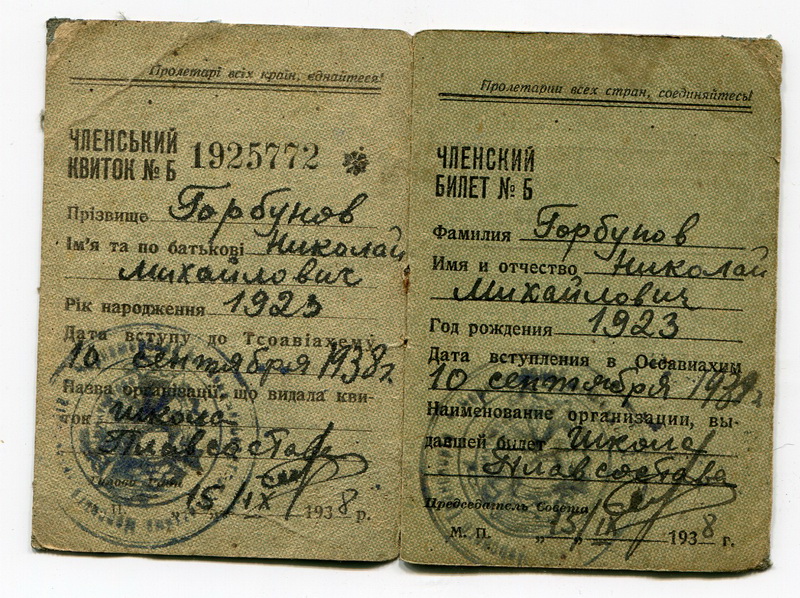 Пролетарі всіх країн, єднайтеся!
ЧЛЕНСЬКИЙ
КВИТОК № Б 1925772
Прізвище Горбунов
Ім'я та по батькові Николай
Михайлович
Рік народження 1923
Дата вступу до Тсоавіахему
10 сентября 1938 г.
Назва організації, що видала кви-
ток Школа
Плавсостава
Голова Ради
15/IX 1938 р.
Пролетарии всех стран, соединяйтесь!
ЧЛЕНСКИЙ
БИЛЕТ № Б
Фамилия Горбунов
Имя и отчество Николай
Михайлович
Год рождения 1923
Дата вступления в Осоавиахим
10 сентября 1938 г.
Наименование организации, вы-
давшей билет Школа
Плавсостава
Председатель Совета
М. П. „15/IX 1938 г.